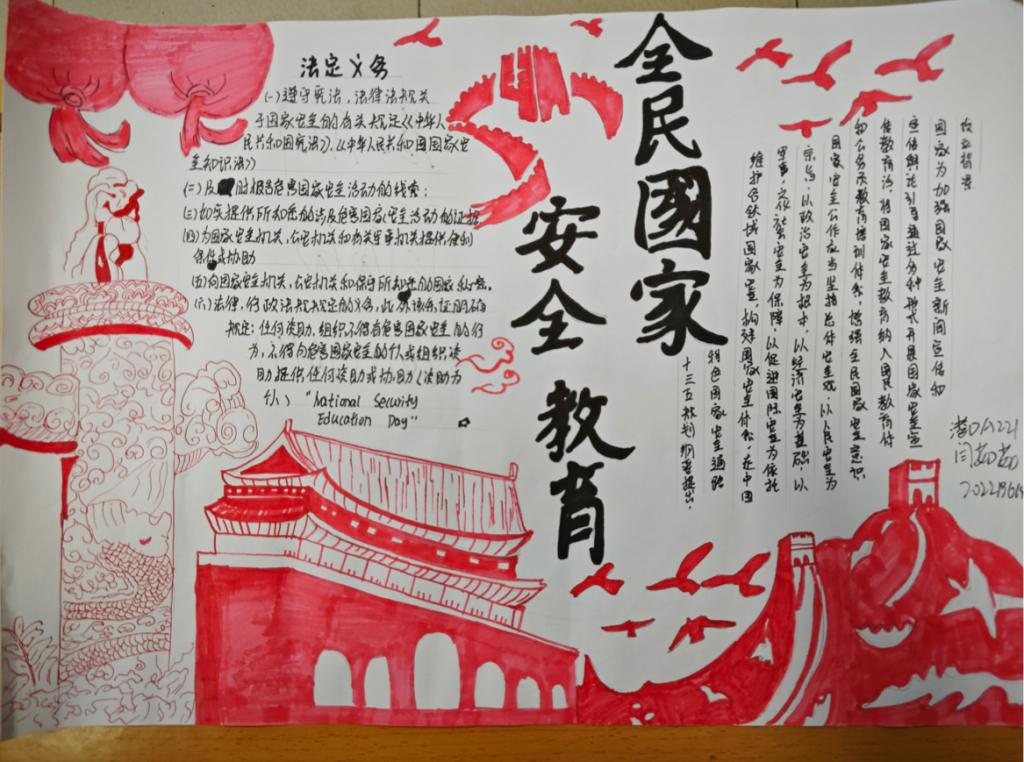 全民國家
安全教育
法定义务
(一)遵守宪法、法律法规关
于国家安全的有关规定《中华人
民共和国宪法》、《中华人民共和国国家安
全知识法》
(二)及时报告危害国家安全活动的线索;
(三)如实提供所知悉的涉及危害国家安全活动的证据
(四)为国家安全机关、公安机关和有关军事机关提供便利
条件或协助
(五)向国家安全机关、公安机关和
(六)法律、行政法规规定的义务,此外该条
规定:任何 组织不得有危害国家安全的行
为,不得向危害国家安全的个人或组织资
助提供任何资助或协助(资助为
"National Security
Education Day"
国家为加强国家安全新闻宣传和
宣传舆论引导通过多种形式开展国家安全宣
传教育活 将国家安全教育纳入国民教育体
和公务员教育培训体系,增强全民国家安全意识
国家安全工作应当坚持总体安全观,以人民安全为
宗旨,以政治安全为根本,以经济安全为基础,以
军事、文 社 安全为保障,以促进国际安全为依托
维护各领域国家安全,构建国家安全体系,走中国
特色国家安全道路
十三五规划纲要提出,